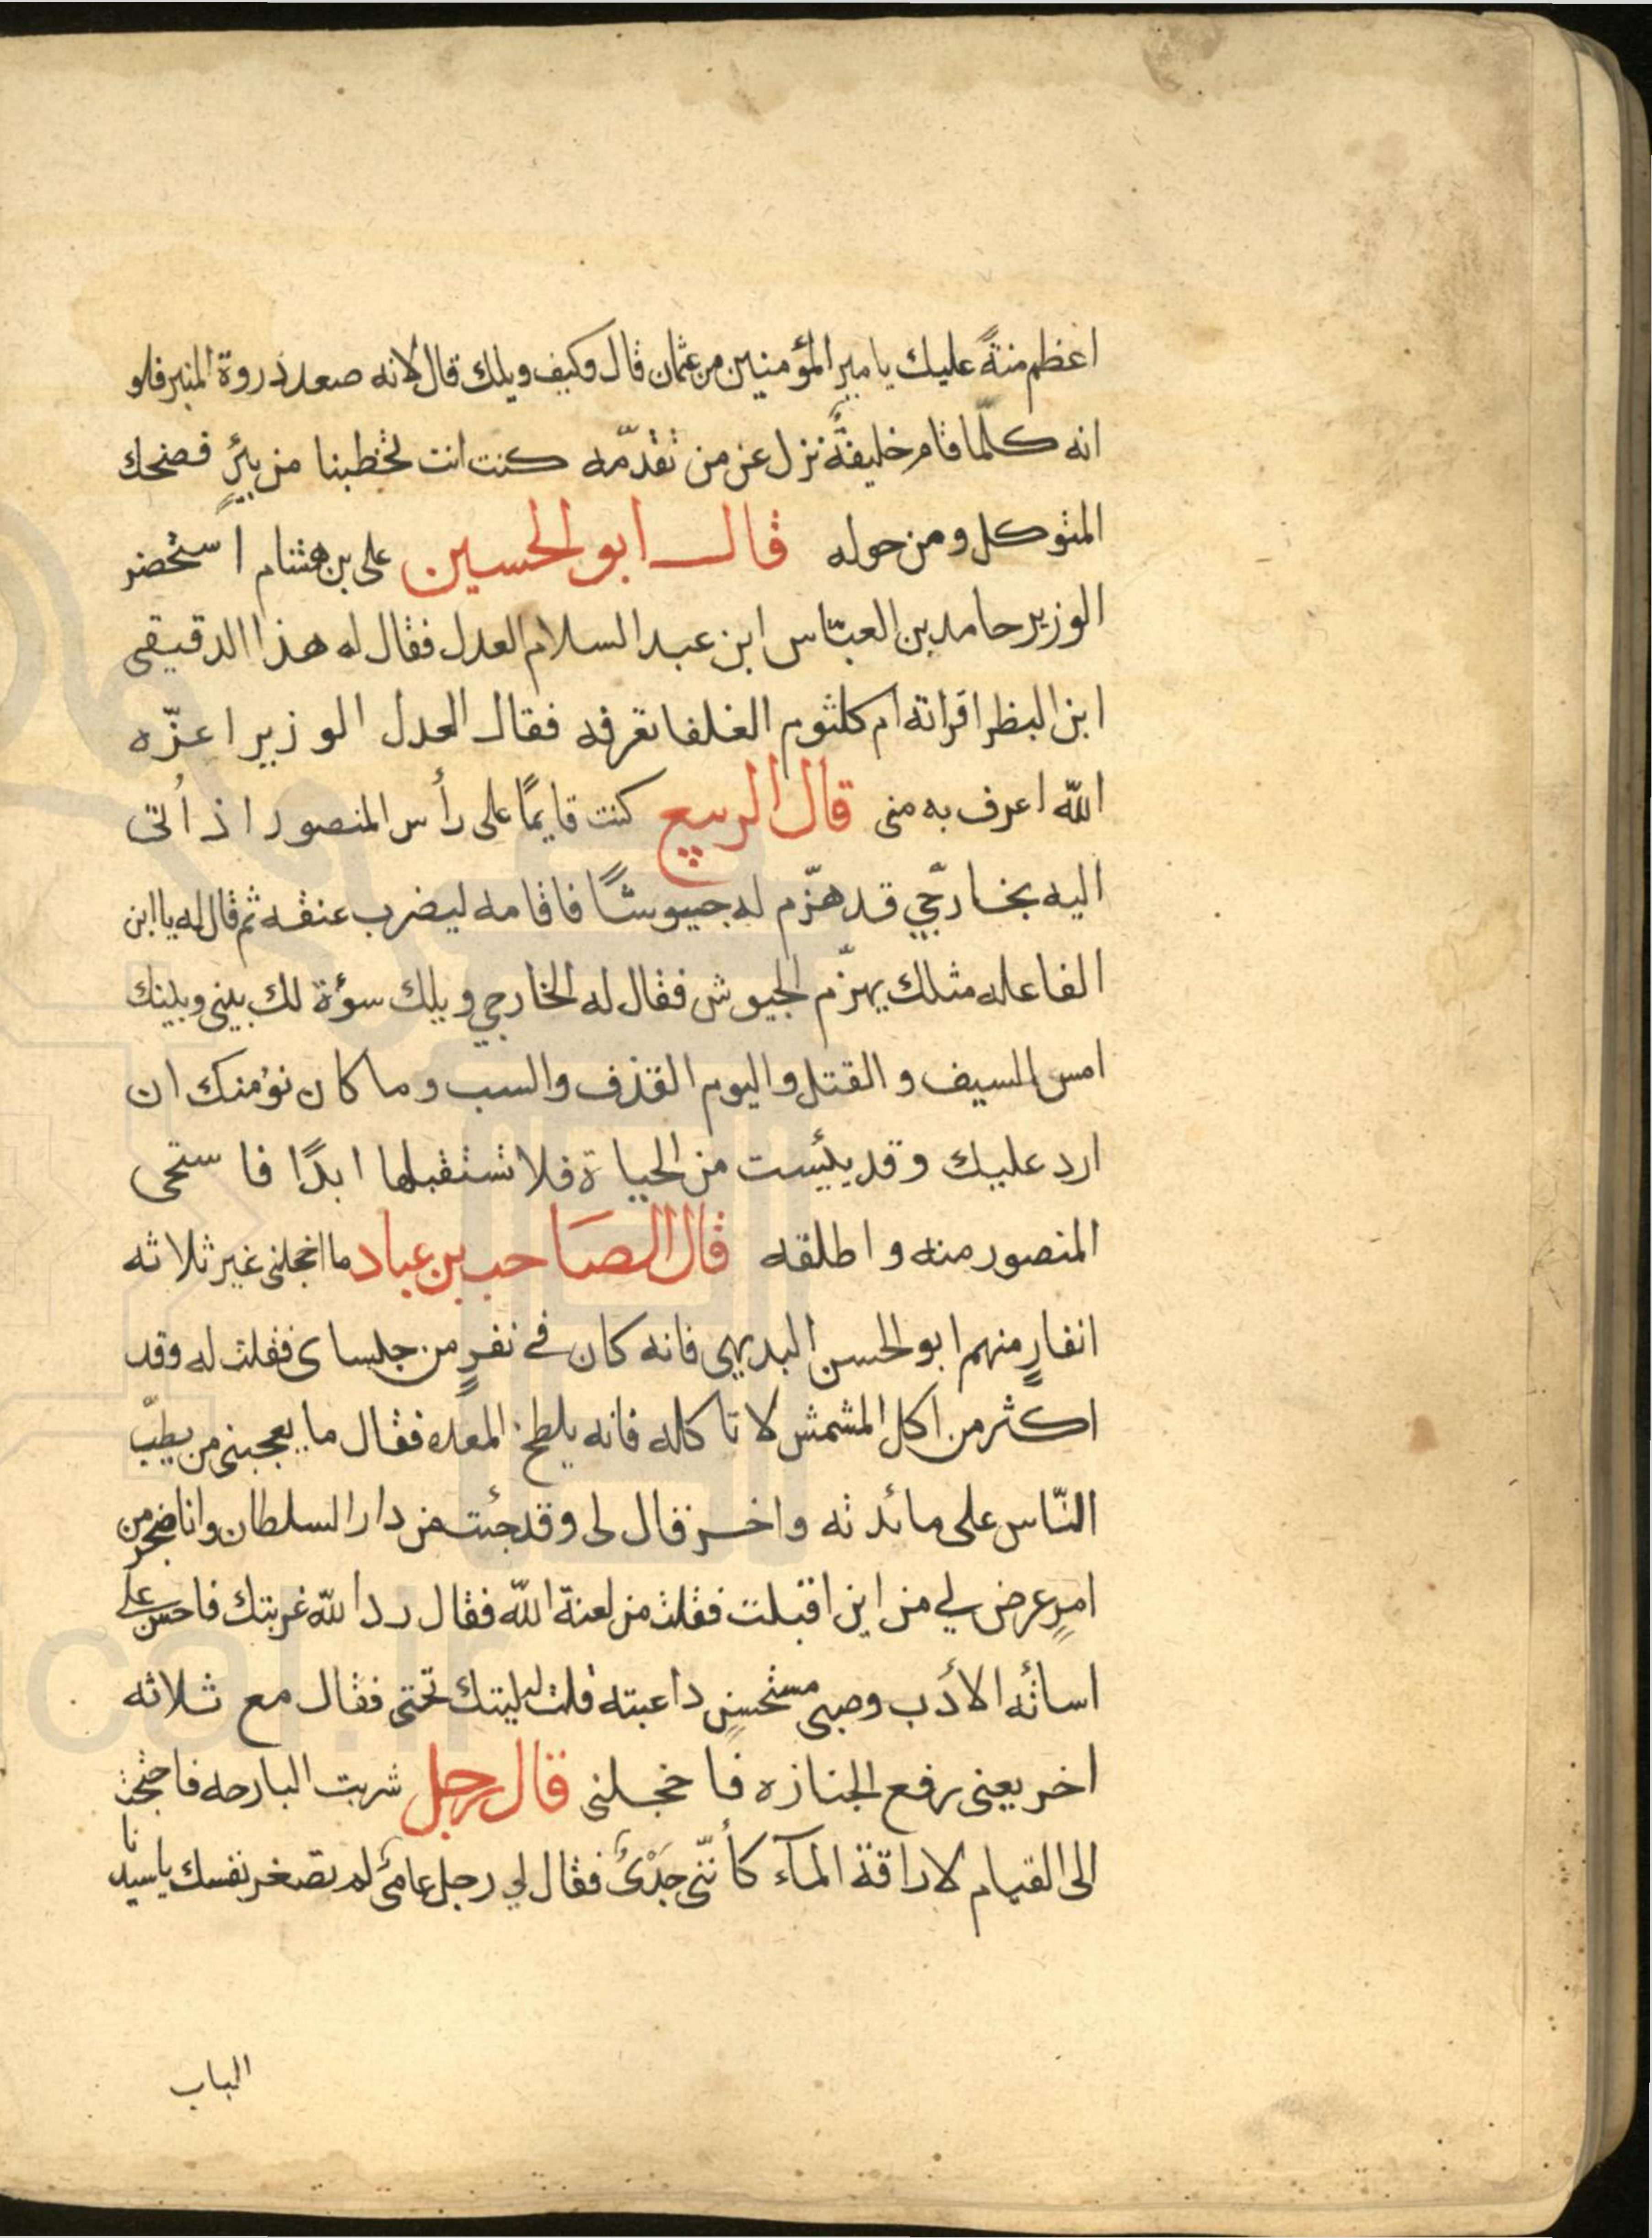 اعظم منةً عليك يا مير المؤمنين من عثمان قال وكيف ويلك قال لانه صعد ذروة المنبر فلو
انه كلّما قام خليفةٌ نزل عن من تقدّمه كنت انت تخطبنا من بئرٍ فضحك
المتوكل ومن حوله قال ابو الحسين على بن هشام استحضر
الوزير حامد بن العبّاس ابن عبد السلام العدل فقال له هذا الدقيقى
ابن البظر اقراته ام كلثوم الغلفا تعرفه فقال العدل الوزير اعزّه
اللّه اعرف به منى قال الربيع كنت قايمًا على رأس المنصور اذ اُتى
اليه بخارجّي قد هزّم له جيوشًا فاقامه ليضرب عنقه ثم قال له يا ابن
الفاعله مثلك يهزّم الجيوش فقال له الخارجي ويلك سؤة لك بينى وبينك
امس السيف و القتل واليوم القذف والسب وما كان نؤمنك ان
ارد عليك وقد يئست من الحياة فلا تستقبلها ابدًا فاستحى
المنصور منه واطلقه قال الصاحب بن عباد ما اخجلنى غير ثلاثه
انفارٍ منهم ابو الحسن البديهى فانه كان فى نفرٍ من جلساى فقلت له وقد
اكثر من اكل المشمش لا تاكله فانه يلطخ المعده فقال ما يعجبنى من يطبّ
النّاس على مائدته واخر قال لى وقد جئت من دار السلطان وانا ضجر من
امرٍ عرض لي من اين اقبلت فقلت من لعنة اللّه فقال رد اللّه غربتك فاحسن على
اسائه الأدب وصبى مستحسنٍ داعبته قلت ليتك تحتى فقال مع ثلاثه
اخر يعنى رفع الجنازه فاخجلنى قال رجل شربت البارحه فاحتجت
الى القيام لاراقة المآء كأننّى جَدْىٌ فقال لي رجل عامىٌ لم تصغر نفسك يا سيدنا
الباب